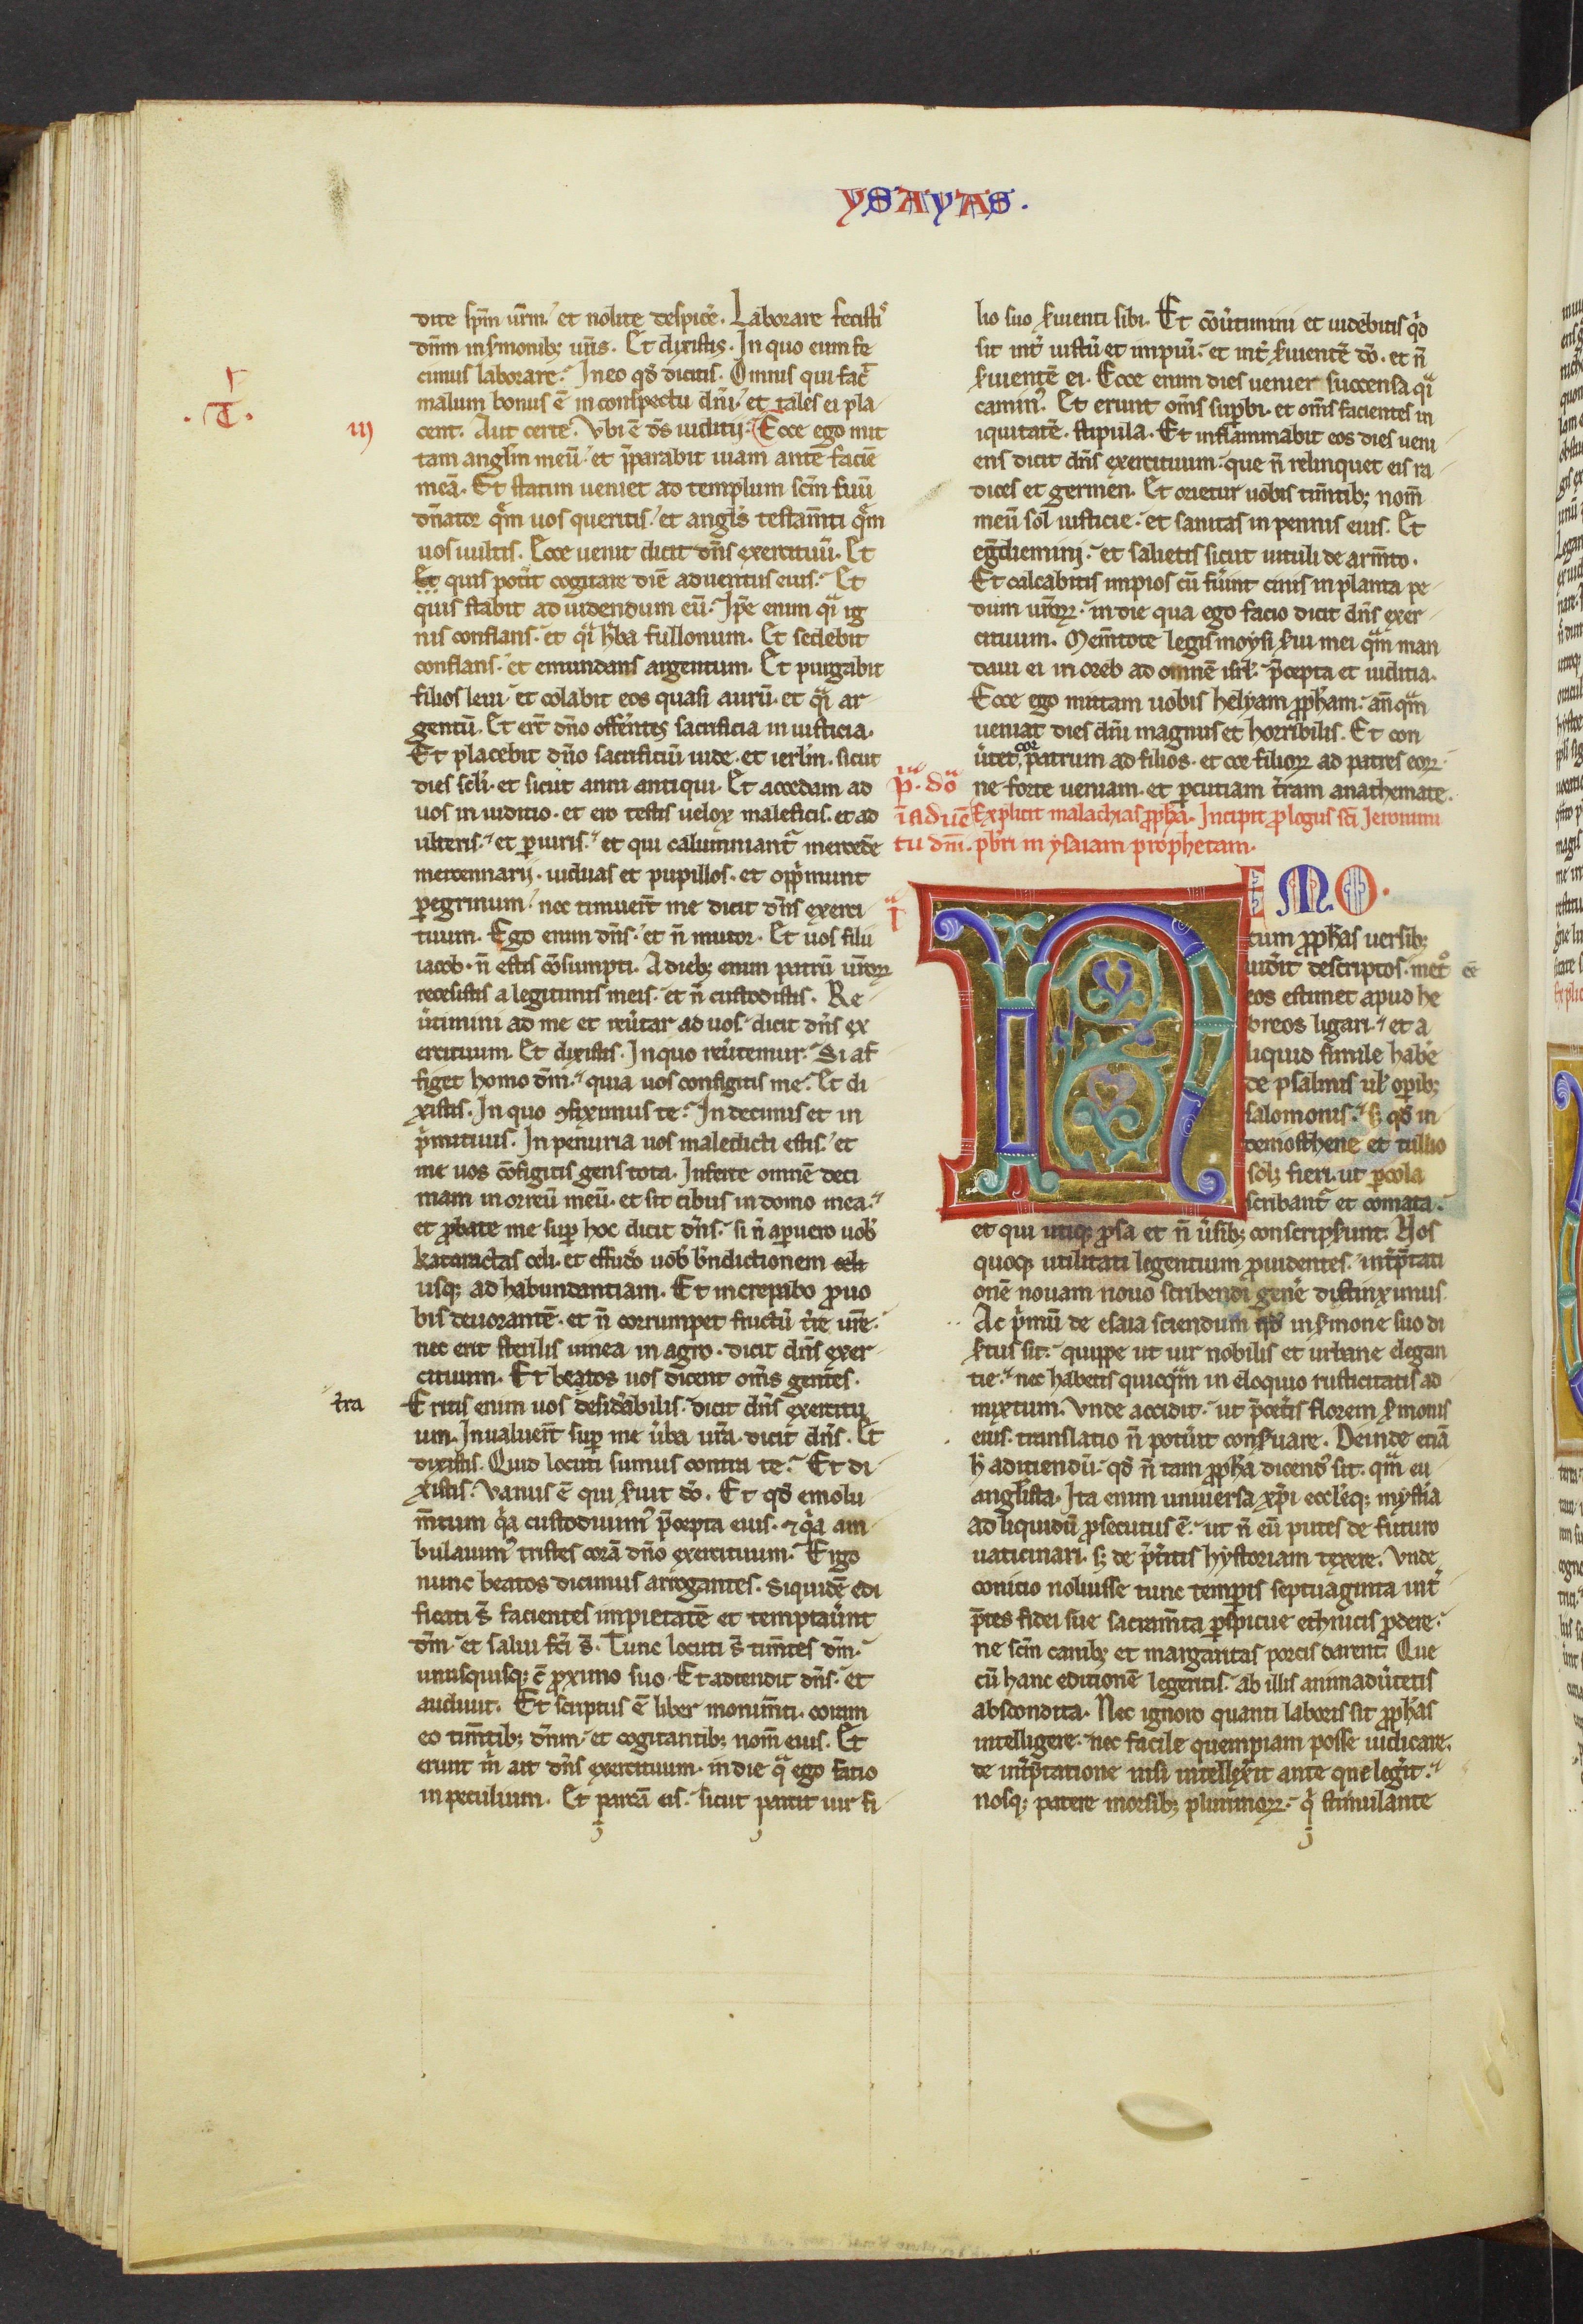 YSAYAS.
dite spm̄ ur̄m. et nolite despicẽ. Laborare fecistis
dn̄m in s̉monib; ur̄is. Et dixistis. In quo eum fe
cimus laborare. In eo qd̄ dicitis. Omnis qui fac̄
malum bonus ē in conspectu dn̄i. et tales ei pla
.T.
iij
cent. Aut certe. Vbi ē ds̄ iuditij. Ecce ego mit
tam angl̄m meū. et p̄parabit uiam ante faciē
meā. Et statim ueniet ad templum sc̄m suū
dn̄ator qm̄ uos queritis. et angl̄s testam̄ti qm̄
uos uultis. Ecce uenit dicit dn̄s exercituū. Et
Et quis pot̉it cogitare diē aduentus eius. Et
quis stabit ad uidendum eū. Ip̄e enim qͣi ig
nis conflans. et qͣi h̉ba fullonum. Et sedebit
conflans. et emundans argentum. Et purgabit
filios leui. et colabit eos quasi aurū. et qͣi ar-
gentū. Et er̄t dn̄o offer̄ntes sacrificia in iusticia.
Et placebit dn̄o sacrificiū iude. et ierl̄m. sicut
dies scl̄i. et sicut anni antiqui. Et accedam ad
uos in iuditio. et ero testis uelox maleficis. et ad
ulteris. et ꝑiuris. et qui calumniantᷣ mercedē
mercennarij. uiduas et pupillos. et opp̉munt
ꝑegrinum. nec timuer̄t me dicit dn̄s exerci-
tuum. Ego enim dn̄s. et n̄ mutor. Et uos filii
iacob. n̄ estis cōsumpti. A dieb; enim patrū ur̄oꝝ
recesistis a legitimis meis. et n̄ custodistis. Re-
ủtimini ad me et reủtar ad uos. dicit dn̄s ex
ercituum. Et dixistis. In quo reủtemur. Si af
figet homo dm̄. quia uos configitis me. Et di
xistis. In quo ꝯfiximus te. In decimis et in
p̉mitiuis. In penuria uos maledicti estis. et
me uos cōfigitis gens tota. Inferte omnē deci
mam in orreū meū. et sit cibus in domo mea.
et ꝓbate me suꝑ hoc dicit dn̄s. si n̄ aperuero uob̄
kataractas celi. et effudo uob̄ bn̄dictionem celi
usq; ad habundantiam. Et increpabo ꝓ uo
bis deuorantē. et n̄ corrumpet fructū t̉re ur̄e.
nec erit sterilis uinea in agro. dicit dn̄s exer-
cituum. Et beatos uos dicent om̄s gentes.
t̉ra
Eritis enim uos desid̉abilis. dicit dn̄s exercitu
um. Inualuer̄t suꝑ me ủba ur̄a. dicit dn̄s. Et
dixistis. Quid locuti sumus contra te. Et di-
xistis. Vanus ē qui s̉uit dō. Et qd̄ emolu-
m̄tum qͣa custodiuim᷒ p̄cepta eius. ⁊ qͣa am-
bulauim᷒ tristes corā dn̄o exercituum. Ergo
nunc beatos dicimus arrogantes. Siquidē edi
ficati s̄ facientes impietatē et temptaủnt
dm̄. et salui fc̄i s̄. Tunc locuti s̄ tim̄tes dm̄.
unusquisq; c̄ ꝓximo suo. Et adtendit dn̄s. et
audiuit. Et scriptus ē liber monum̄ti. coram
eo tim̄tib; dn̄m. et cogitantib; nom̄ eius. Et
erunt m̉ ait dn̄s exercituum. in die qͣ ego facio
in peculium. Et parcā eis. sicut parcit uir fi-
lio suo s̉uienti sibi. Et cōủtimini et uidebitis qͥd
sit int̉ iustū et impiū. et int̉ s̉uientē dō. et n̄
s̉uientē ei. Ecce enim dies ueniet succensa qͣi
camin᷒. Et erunt om̄s suꝑbi. et om̄s facientes in
iquitatē. stipula. Et inflammabit eos dies ueni-
ens dicit dn̄s exercituum. que n̄ relinquet eis ra-
dices et germen. Et orietur uobis tim̄tib; nom̄
meū sol iusticie. et sanitas in pennis eius. Et
egrediemini. et salietis sicut uituli de arm̄to.
Et calcabitis impios cū fủint cinis in planta pe-
dum ur̄oꝝ. in die qua ego facio dicit dn̄s exer-
cituum. Mem̄tote legis moysi s̉ui mei qm̄ man
daui ei in oreb ad omnē isrl̄. p̄cepta et iuditia.
Ecce ego mittam uobis helyam ꝓph̄am. an̄qm̄
ueniat dies dn̄i magnus et horribilis. Et con
ủtet cor patrum ad filios. et cor filioꝝ ad patres eoꝝ.
ne forte ueniam. et ꝑcutiam t̉ram anathemate.
p̉. dō
ī aduē
tu dm̄.
Explicit malachias ꝓph̄a. Incipit ꝓlogus sc̄i Jeronimi
pb̄ri in ysaiam prophetam.
I
NEMO.
cum ꝓph̄as uersib;
uid̉it descriptos. metͦ
eos estimet apud he
breos ligari. et a
liquid simile habe
de psalmis ul̄ oꝑib;
salomonis. s; qd̄ in
demosthene et tullio
sol; fieri. ut ꝑ cola
scribantᷣ et comata.
et qui utiq; ꝓsa et n̄ ủsib; conscrips̉unt. Nos
quoq; utilitati legentium ꝓuidentes. int̉p̄tati
onē nouam nouo scribendi gene distinximus
Ac p̉mū de esaia sciendum qd̄ in s̉mone suo di
s̉tus sit. quippe ut uir nobilis et urbane elegan
tie. nec habens quicqm̄ in eloquio rusticitatis ad
mixtum. Vnde accidit. ut p̄cet̉is florem s̉monis
eius. translatio n̄ potủit cons̉uare. Deinde etiā
h̉ adiciendū. qd̄ n̄ tam ꝓph̄a dicend᷒ sit. qm̄ eu
angl̄ista. Ita enim uniuersa xp̄i eccl̄eq; mystia
ad liquidū ꝓsecutus ē. ut n̄ eū putes de futuro
uaticinari. s; de p̄t̉itis hystoriam texere. Vnde
conicio noluisse tunc temꝑis septuaginta int̉
p̄tes fidei sue sacram̄ta ꝑspicue ethnicis ꝓdere.
ne sc̄m canib; et margaritas porcis darent. Que
cū hanc editionē legeritis. ab illis animadủtetis
abscondita. Nec ignoro quanti laboris sit ꝓph̄as
intelligere. nec facile quempiam posse iudicare.
de int̉p̄tatione nisi intellex̉it ante que leg̉it.
nosq; patere morsib; plurimoꝝ. qͥ stimulante